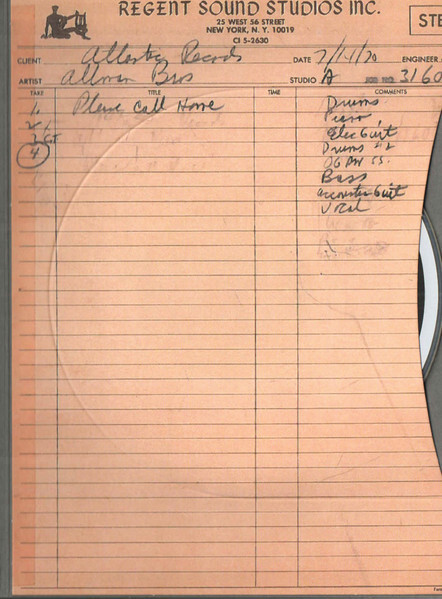 REGENT SOUND STUDIOS INC.
25 WEST 56 STREET
NEW YORK, N. Y. 10019
CI 5-2630
STE
CLIENT Records DATE 7/14/70 ENGINEER
ARTIST Allman Bros STUDIO A JOB NO. 3160
TAKE TITLE TIME COMMENTS
1. Please Call Home Drums
Piano
Elec Guit
4 Drums #2
Bass
Acoustic Guit
Vocal